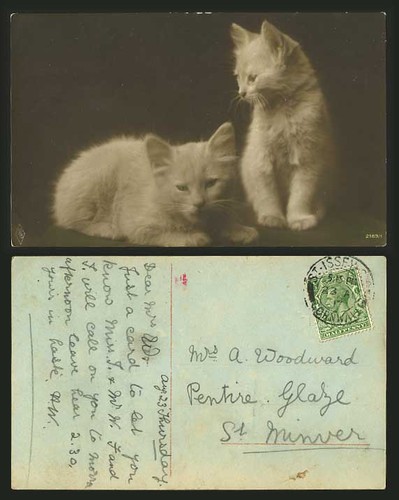 21691
Aug 23 Thursday.
Dear Mrs W.
Just a card to let you
know Mrs. T. & Mr W. T and
I will call on you to morro
afternoon leave hear 2.30,
yours in haste. W.
ST. ISSEY
CORNWALL
Mrs A. Woodward
Pentire. Glaze
St Minver